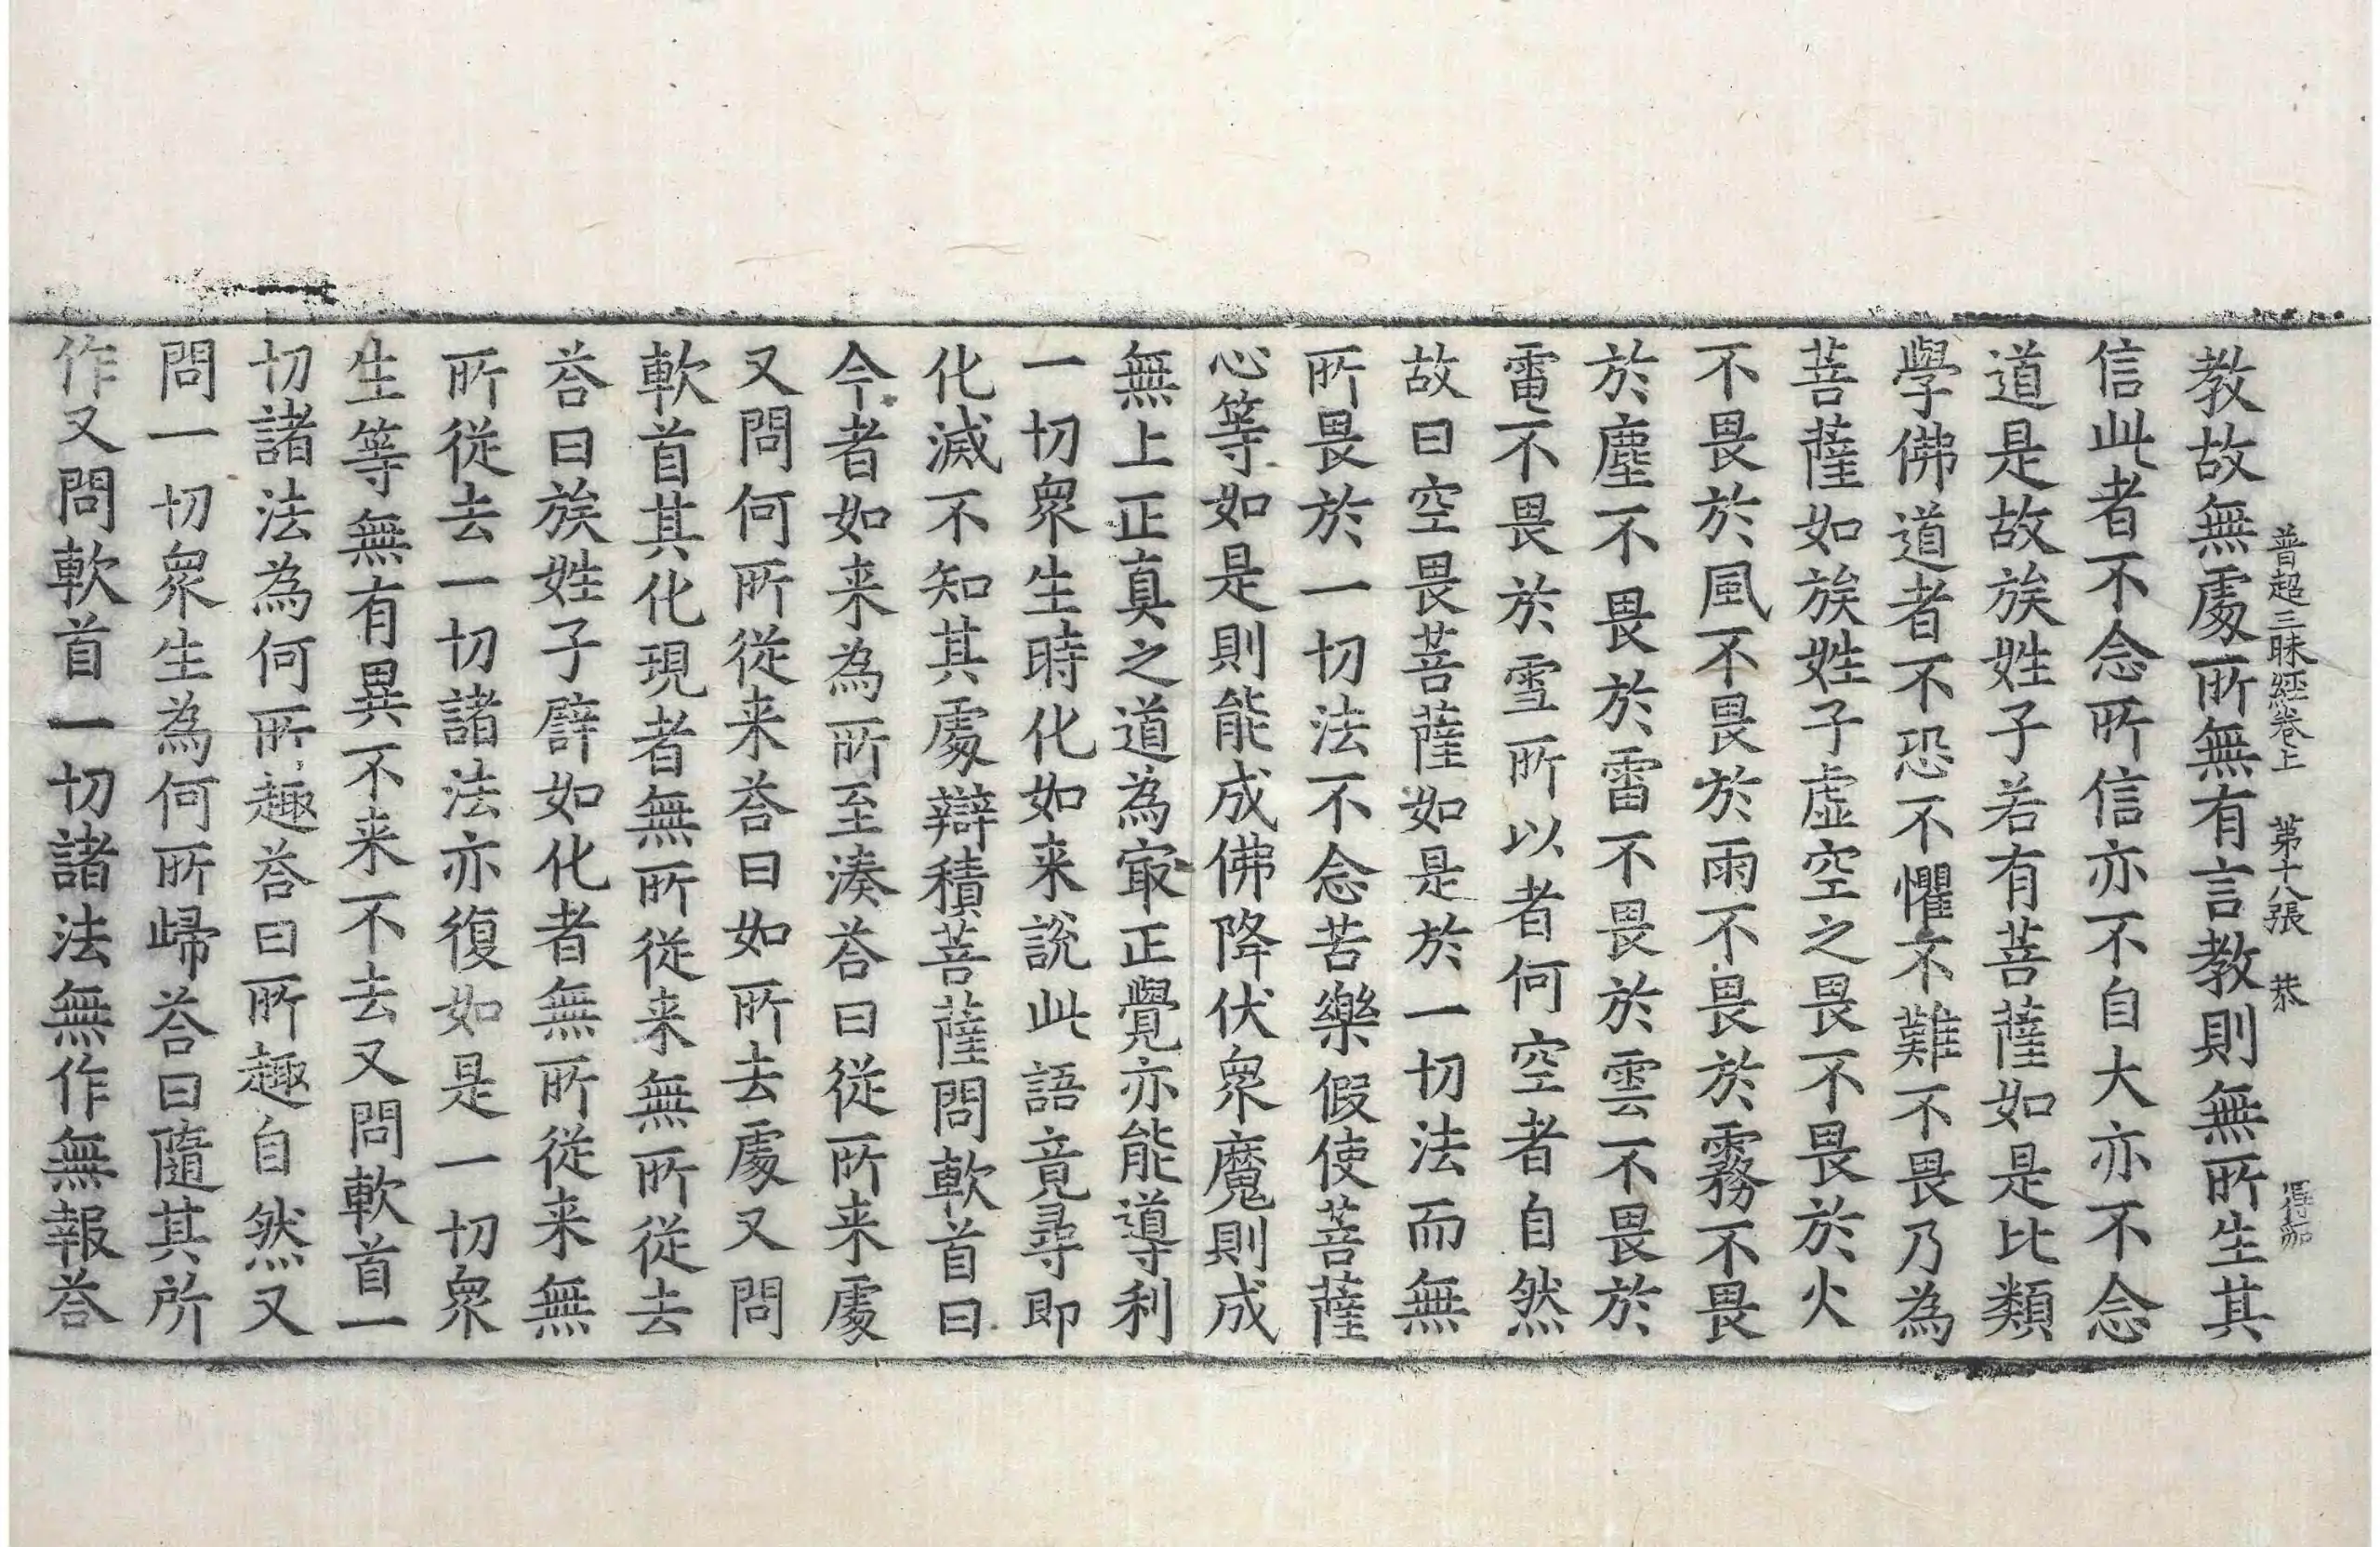 普超三昧經卷上　第十八張　恭
教故無處所無有言教則無所生其
信此者不念所信亦不自大亦不念
道是故族姓子若有菩薩如是比類
學佛道者不恐不懼不難不畏乃為
菩薩如族姓子虛空之畏不畏於火
不畏於風不畏於雨不畏於霧不畏
於塵不畏於雷不畏於雲不畏於
電不畏於雪所以者何空者自然
故曰空畏菩薩如是於一切法而無
所畏於一切法不念苦樂假使菩薩
心等如是則能成佛降伏衆魔則成
無上正真之道為㝡正覺亦能導利
一切衆生時化如来說此語竟尋即
化滅不知其處辯積菩薩問軟首曰
今者如来為所至湊荅曰從所来處
又問何所從来荅曰如所去處又問
軟首其化現者無所從来無所從去
荅曰族姓子譬如化者無所從来無
所從去一切諸法亦復如是一切衆
生等無有異不来不去又問軟首一
切諸法為何所趣荅曰所趣自然又
問一切衆生為何所歸荅曰隨其所
作又問軟首一切諸法無作無報荅